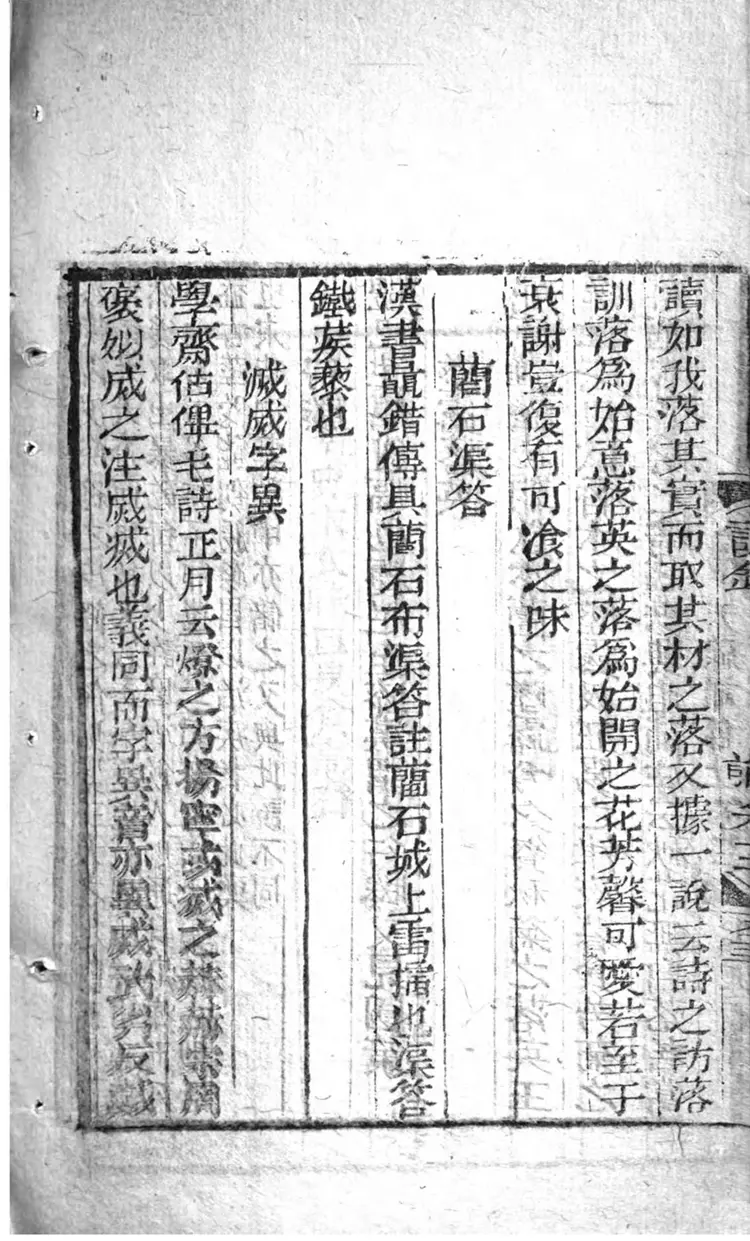 讀如我落其實而取其材之落又據一說云詩之訪落
訓落爲始意落英之落爲始開之花芳馨可愛若至于
衰謝豈復有可飡之味
藺石渠答
漢書鼂錯傳具藺石布渠答註藺石城上雷擂也渠答
鐵蒺藜也
滅烕字異
學齋佔俾毛詩正月云燎之方揚寧或滅之赫赫宗周
褒姒烕之注烕滅也義同而字異音亦異烕武劣反滅